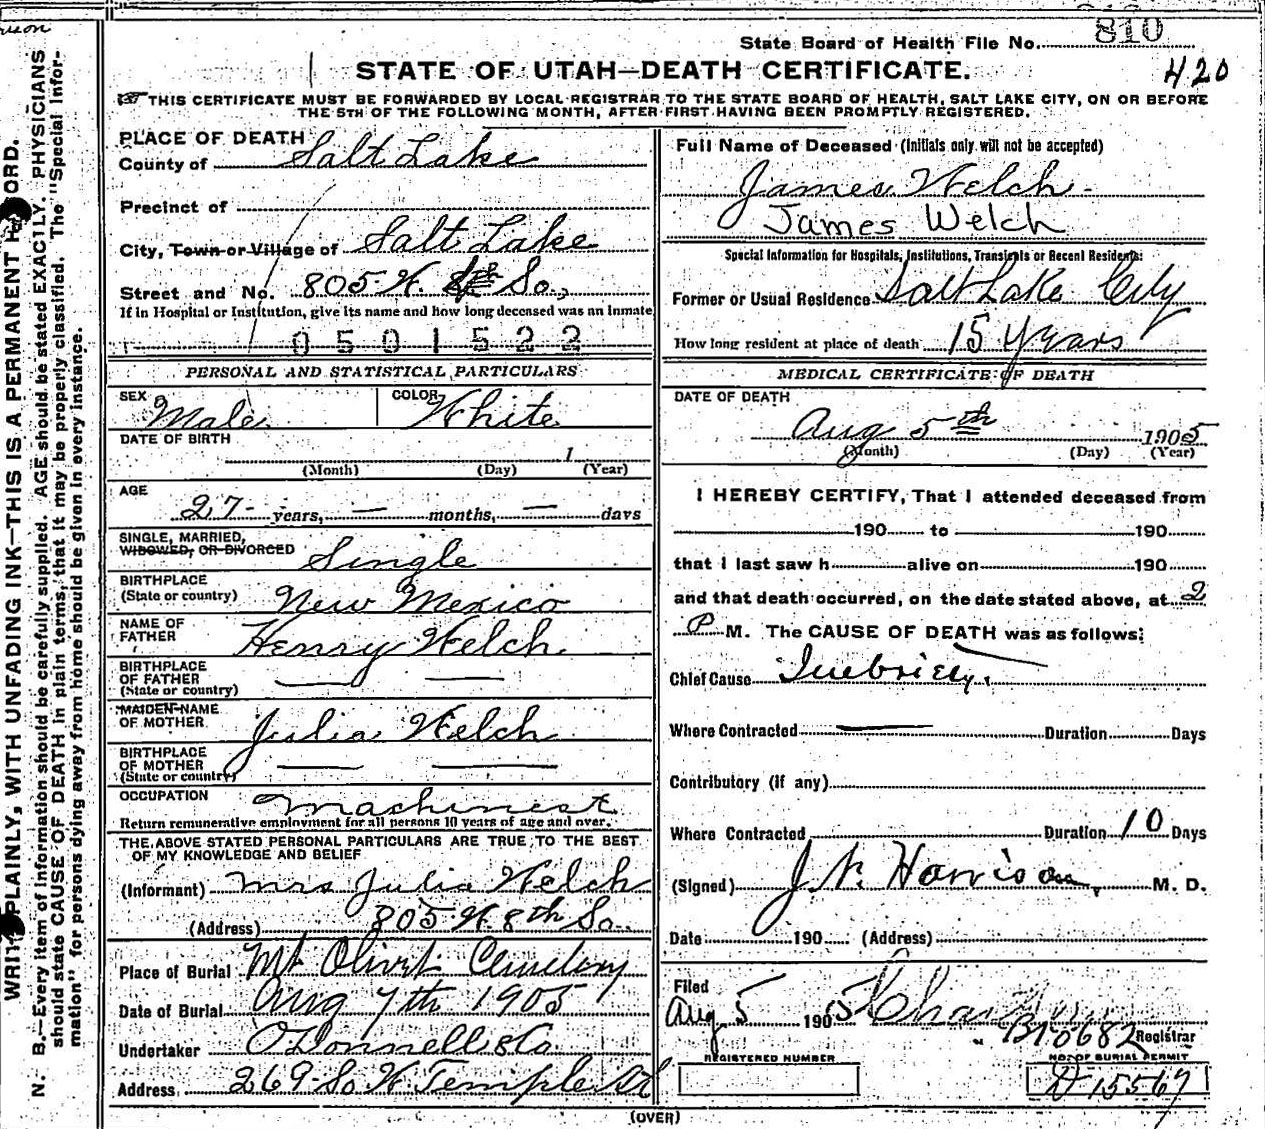 810
State Board of Health File No.
STATE OF UTAH—DEATH CERTIFICATE.
420
THIS CERTIFICATE MUST BE FORWARDED BY LOCAL REGISTRAR TO THE STATE BOARD OF HEALTH, SALT LAKE CITY, ON OR BEFORE
THE 5TH OF THE FOLLOWING MONTH, AFTER FIRST HAVING BEEN PROMPTLY REGISTERED.
WRITE PLAINLY, WITH UNFADING INK—THIS IS A PERMANENT RECORD.
N. B.—Every item of information should be carefully supplied. AGE should be stated EXACTLY. PHYSICIANS
should state CAUSE OF DEATH in plain terms, that it may be properly classified. The "Special Infor-
mation" for persons dying away from home should be given in every instance.
PLACE OF DEATH
County of Salt Lake
Precinct of
City, Town or Village of Salt Lake
Street and No. 805 W. 8th So.,
If in Hospital or Institution, give its name and how long deceased was an inmate
0501522
PERSONAL AND STATISTICAL PARTICULARS
SEX Male COLOR White
DATE OF BIRTH
1
(Month) (Day) (Year)
AGE
27 years, — months, — days
SINGLE, MARRIED,
WIDOWED, OR DIVORCED Single
BIRTHPLACE
(State or country) New Mexico
NAME OF
FATHER Henry Welch
BIRTHPLACE
OF FATHER — —
(State or country)
MAIDEN NAME
OF MOTHER Julia Welch
BIRTHPLACE
OF MOTHER — —
(State or country)
OCCUPATION Machinest
Return remunerative employment for all persons 10 years of age and over.
THE ABOVE STATED PERSONAL PARTICULARS ARE TRUE TO THE BEST
OF MY KNOWLEDGE AND BELIEF
(Informant) Mrs Julia Welch
(Address) 805 W. 8th So.
Place of Burial Mt Olivet Cemetery
Date of Burial Aug 7th 1905
Undertaker O'Donnell & Co
Address 269 So W Temple St
Full Name of Deceased (Initials only will not be accepted)
James Welch
James Welch
Special Information for Hospitals, Institutions, Transients or Recent Residents:
Former or Usual Residence Salt Lake City
How long resident at place of death 15 Years
MEDICAL CERTIFICATE OF DEATH
DATE OF DEATH
Aug 5th 1905
(Month) (Day) (Year)
I HEREBY CERTIFY, That I attended deceased from
190 to 190
that I last saw h alive on 190
and that death occurred, on the date stated above, at 2
P M. The CAUSE OF DEATH was as follows:
Chief Cause Inebriety.
Where Contracted — Duration Days
Contributory (if any)
Where Contracted Duration 10 Days
(Signed) J. W. Harrison, M. D.
Date 190 (Address)
Filed
Aug 5 1905
B 10682 Registrar
REGISTERED NUMBER
NO. OF BURIAL PERMIT
D 15567
(OVER)